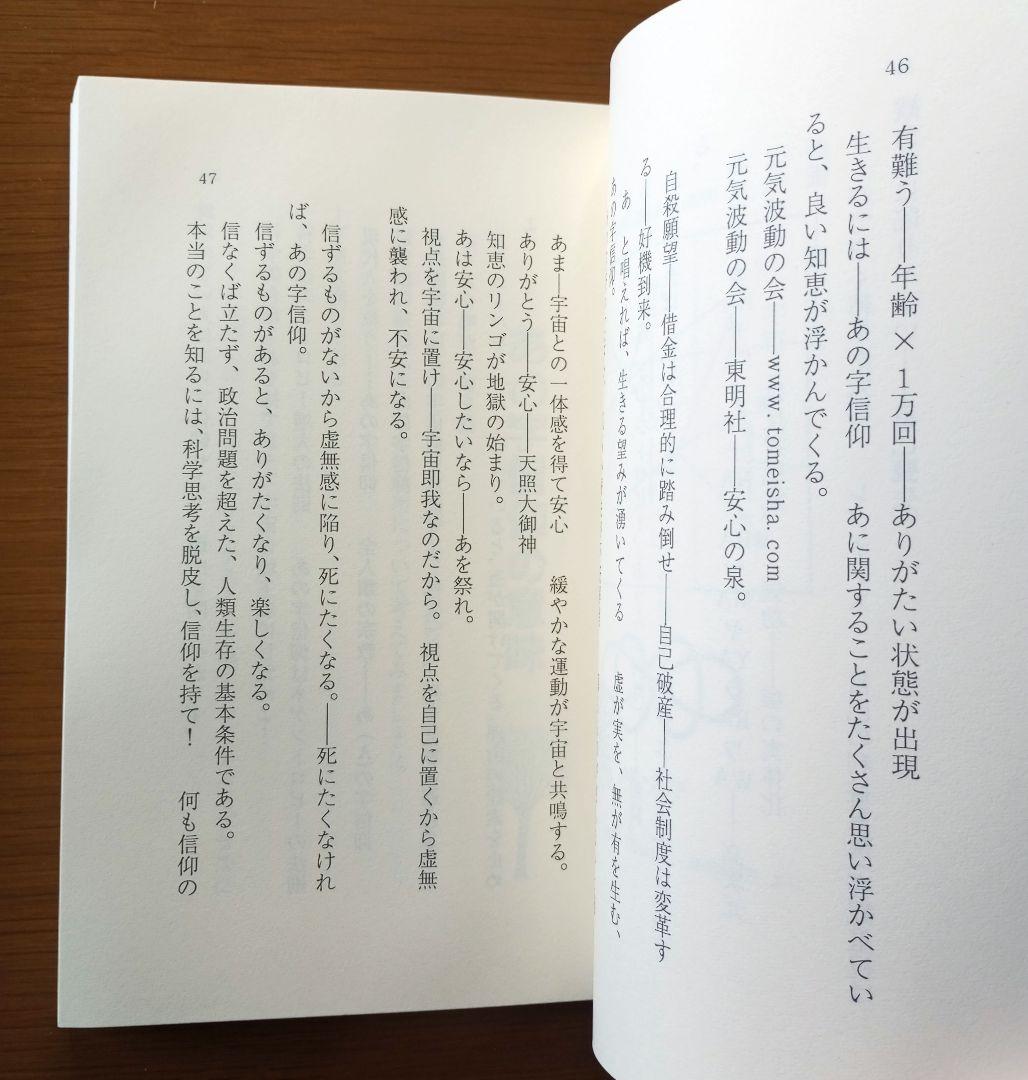 46
有難う――年齢×1万回――ありがたい状態が出現
生きるには――あの字信仰　あに関することをたくさん思い浮かべてい
ると、良い知恵が浮かんでくる。
元気波動の会――www.tomeisha.com
元気波動の会――東明社――安心の泉。
自殺願望――借金は合理的に踏み倒せ――自己破産――社会制度は変革す
る――好機到来。
あ　と唱えれば、生きる望みが湧いてくる　虚が実を、無が有を生む、
あの字信仰。
47
あま―宇宙との一体感を得て安心　緩やかな運動が宇宙と共鳴する。
ありがとう――安心――天照大御神
知恵のリンゴが地獄の始まり。
あは安心――安心したいなら――あを祭れ。
視点を宇宙に置け――宇宙即我なのだから。　視点を自己に置くから虚無
感に襲われ、不安になる。
信ずるものがないから虚無感に陥り、死にたくなる。――死にたくなけれ
ば、あの字信仰。
信ずるものがあると、ありがたくなり、楽しくなる。
信なくば立たず、政治問題を超えた、人類生存の基本条件である。
本当のことを知るには、科学思考を脱皮し、信仰を持て！　何も信仰の